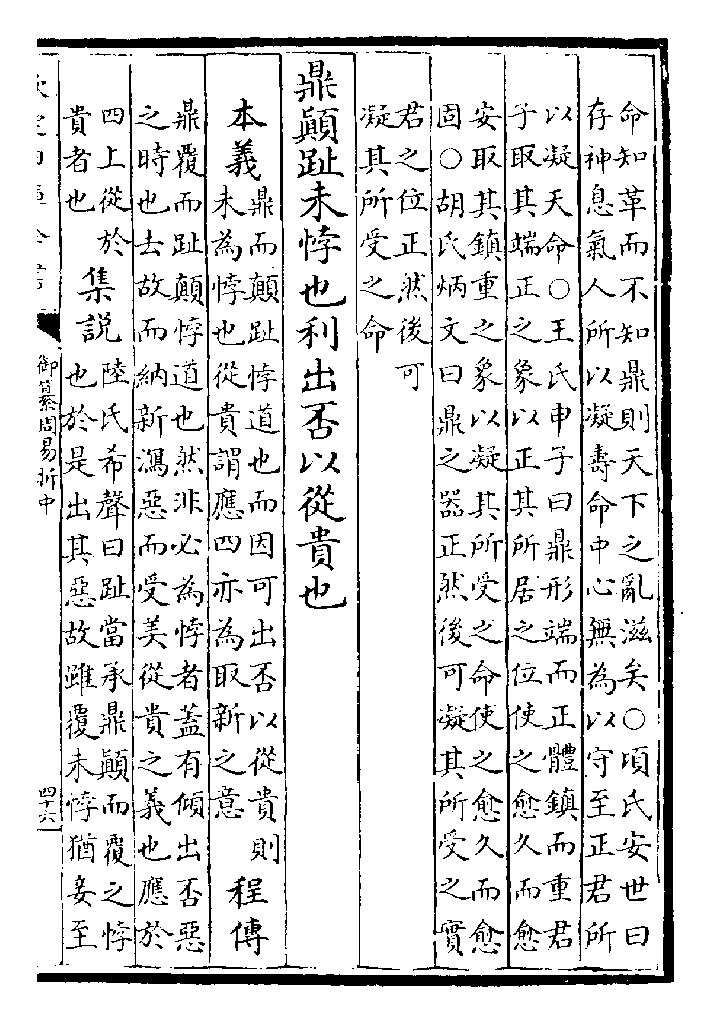 命知革而不知鼎則天下之亂滋矣○項氏安世曰
存神息氣人所以凝壽命中心無為以守至正君所
以凝天命○王氏申子曰鼎形端而正體鎮而重君
子取其端正之象以正其所居之位使之愈久而愈
安取其鎮重之象以凝其所受之命使之愈久而愈
固○胡氏炳文曰鼎之器正然後可凝其所受之實
君之位正然後可
凝其所受之命
鼎顛趾未悖也利出否以從貴也
本義
鼎而顛趾悖道也而因可出否以從貴則
未為悖也從貴謂應四亦為取新之意
程傳
鼎覆而趾顛悖道也然非必為悖者蓋有傾出否惡
之時也去故而納新瀉惡而受美從貴之義也應於
四上從於
貴者也
集說
陸氏希聲曰趾當承鼎顛而覆之悖
也於是出其惡故雖覆未悖猶妾至
御纂周易折中
四十六